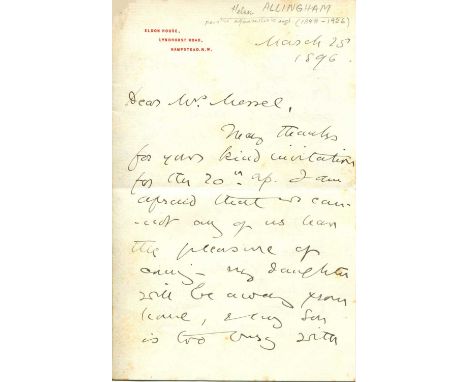 Helen ALLINGHAM
(1848-1926)
ELDON HOUSE,
LYNDHURST ROAD,
HAMPSTEAD, N.W.
March 25
1896
Dear Mrs Messel,
Many thanks
for your kind invitation
for the 20th Ap. I am
afraid that we can-
-not any of us have
the pleasure of
coming - my daughter
will be away from
home, & my son
is too busy with